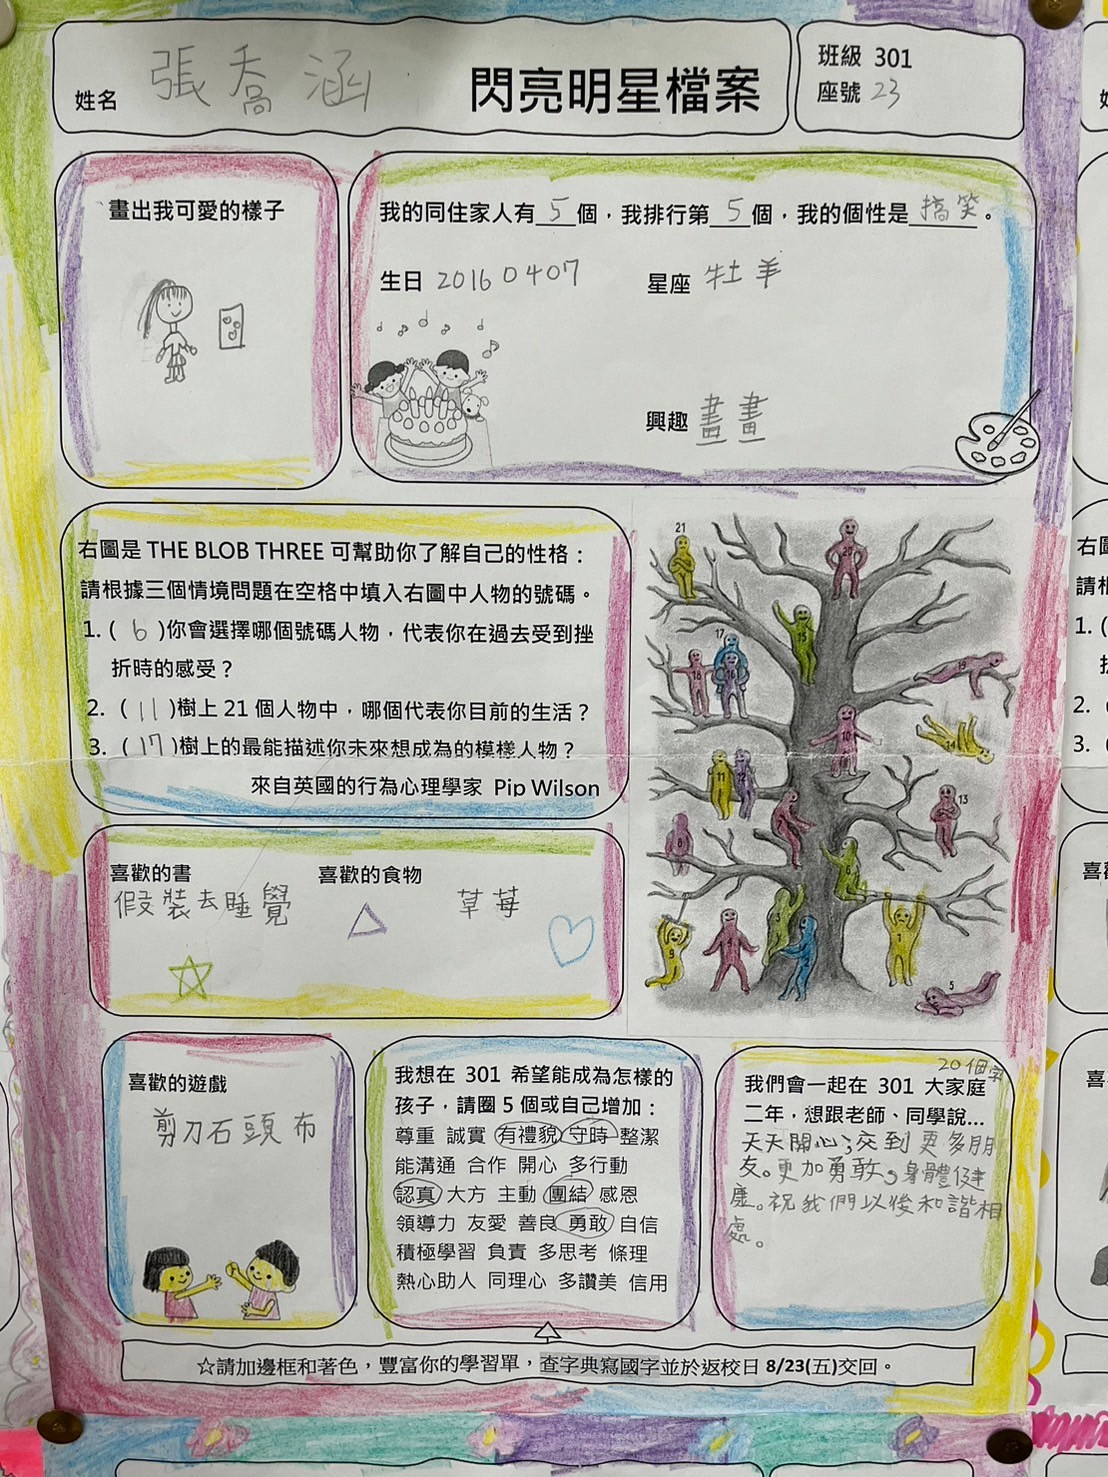 姓名 張喬涵 閃亮明星檔案
班級 301
座號 23
畫出我可愛的樣子
我的同住家人有 5 個，我排行第 5 個，我的個性是 搞笑 。
生日 20160407 星座 牡羊
興趣 畫畫
右圖是 THE BLOB THREE 可幫助你了解自己的性格：
請根據三個情境問題在空格中填入右圖中人物的號碼。
1. ( 6 )你會選擇哪個號碼人物，代表你在過去受到挫
折時的感受？
2. ( 11 )樹上 21 個人物中，哪個代表你目前的生活？
3. ( 17 )樹上的最能描述你未來想成為的模樣人物？
來自英國的行為心理學家 Pip Wilson
21
20
15
17
18
16
19
14
10
11
12
13
8
6
9
4
3
2
1
5
喜歡的書 喜歡的食物
假裝去睡覺 草莓
喜歡的遊戲
剪刀石頭布
我想在 301 希望能成為怎樣的
孩子，請圈 5 個或自己增加：
尊重 誠實 有禮貌 守時 整潔
能溝通 合作 開心 多行動
認真 大方 主動 團結 感恩
領導力 友愛 善良 勇敢 自信
積極學習 負責 多思考 條理
熱心助人 同理心 多讚美 信用
20個字
我們會一起在 301 大家庭
二年，想跟老師、同學說…
天天開心，交到更多朋
友。更加勇敢，身體健
康。祝我們以後和諧相
處。
☆請加邊框和著色，豐富你的學習單，查字典寫國字並於返校日 8/23(五)交回。
右圖
請根
1. (
2.
3.
喜